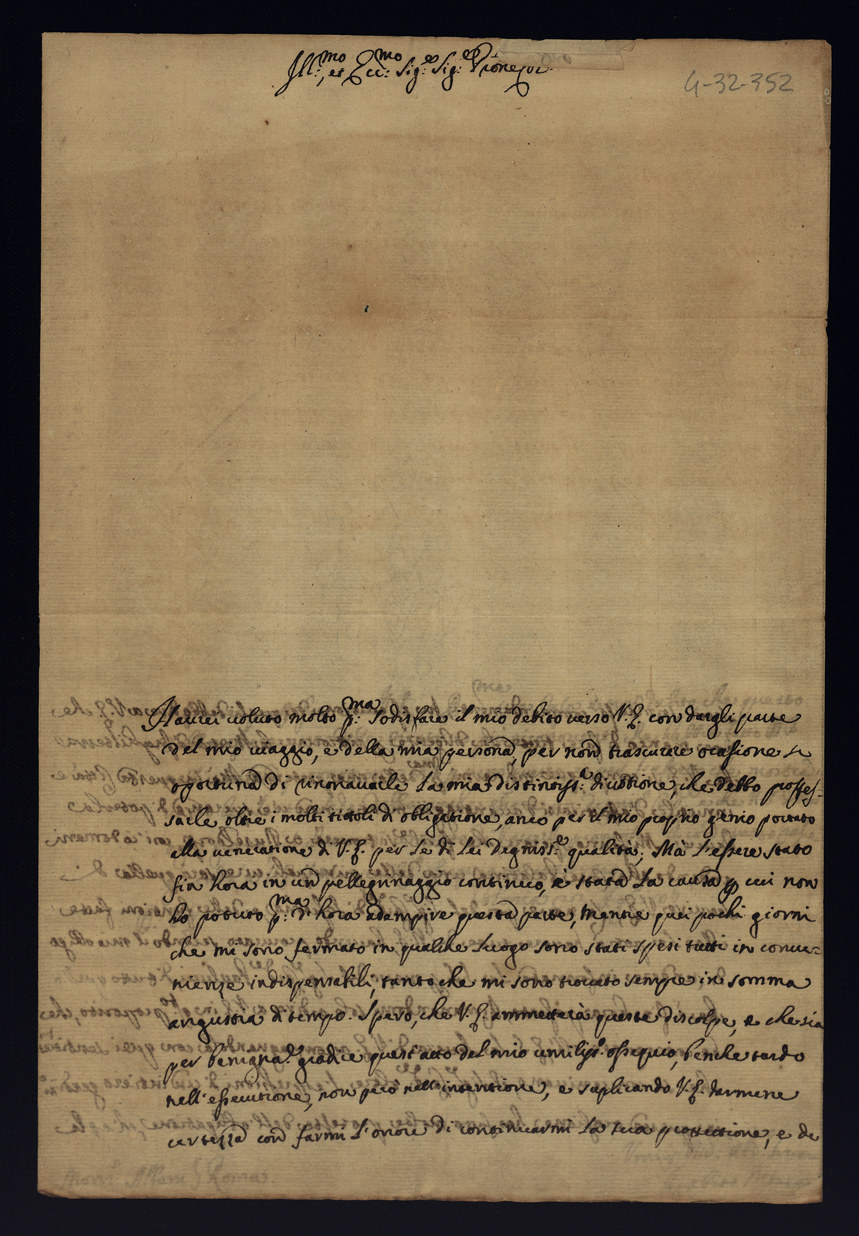 Ill:mo, et Ecc:mo Sig:re Sig:re Pr̃one Col:
4-32-352
Haurei uoluto molto p:ma sodisfare il mio debito uerso V.E. con dargli parte
del mio uiaggio, e della mia persona, per non trascurare ocasione si
oportuna di rinouarle la mia distintiss:a diuotione, che debbo profes-
sarle oltre i molti titoli di obligatione, anco per il mio proprio genio portato
alla ueneratione di V.E. per le di Lei degniss:e qualità; Mà l'essere stato
fin hora in un pellegrinaggio continuo, è stata la causa p cui non
hò potuto p:ma d'hora adempire questa parte, mentre quei pochi giorni
che mi sono fermato in qualche luogo sono stati spesi tutti in conue-
nienze indispensabili, tanto che mi sono trouato sempre in somma
angustia di tempo. Spero, che V.E. ammetterà queste discolpe, e che sia
per benigna:te gradire quest'atto del mio umiliss:o ossequio, benche tardo
nell'essecutione, non però nell'intentione, e suplicando V.E. darmene
certezza con farmi l'onore di continuarmi la sua protettione, e de
Mons:r Albani Roma.